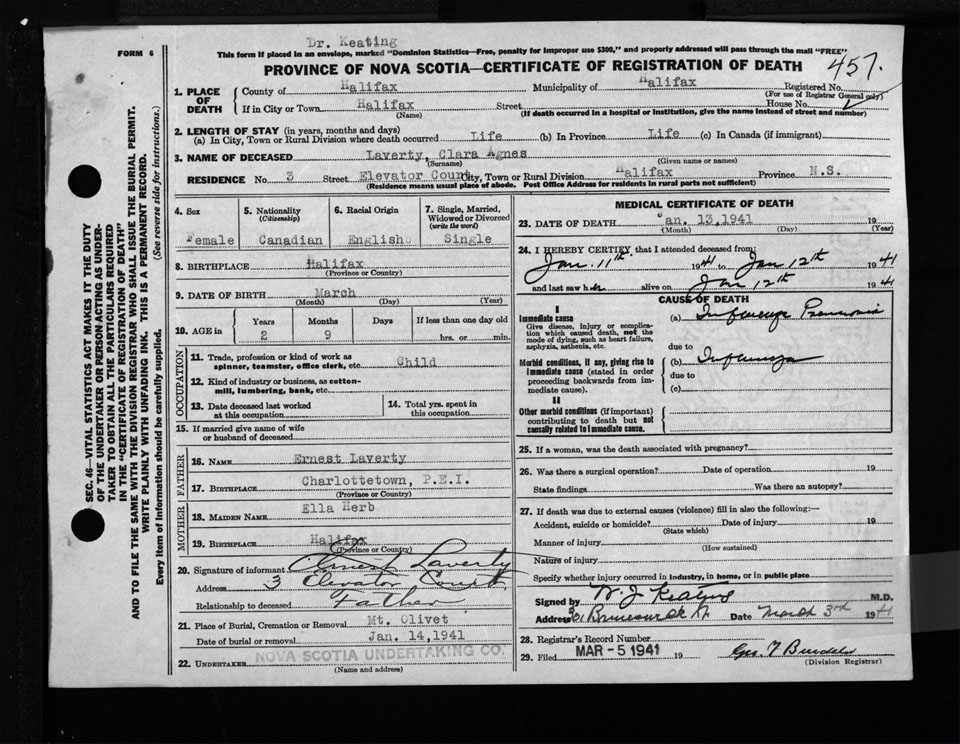 Dr. Keating
FORM 6
This form if placed in an envelope, marked "Dominion Statistics—Free, penalty for improper use $300," and properly addressed will pass through the mail "FREE"
PROVINCE OF NOVA SCOTIA—CERTIFICATE OF REGISTRATION OF DEATH
457.
1. PLACE OF DEATH
County of Halifax Municipality of Halifax Registered No.
(For use of Registrar General only)
If in City or Town Halifax Street House No.
(Name) (If death occurred in a hospital or institution, give the name instead of street and number)
2. LENGTH OF STAY (in years, months and days)
(a) In City, Town or Rural Division where death occurred Life (b) In Province Life (c) In Canada (if immigrant)
3. NAME OF DECEASED Laverty, Clara Agnes
(Surname) (Given name or names)
RESIDENCE No. 3 Street Elevator Court City, Town or Rural Division Halifax Province N.S.
(Residence means usual place of abode. Post Office Address for residents in rural parts not sufficient)
4. Sex
Female
5. Nationality
(Citizenship)
Canadian
6. Racial Origin
English
7. Single, Married, Widowed or Divorced
(write the word)
Single
8. BIRTHPLACE Halifax
(Province or Country)
9. DATE OF BIRTH March
(Month) (Day) (Year)
10. AGE in
Years Months Days If less than one day old
2 9 hrs. or min.
OCCUPATION
11. Trade, profession or kind of work as
spinner, teamster, office clerk, etc. Child
12. Kind of industry or business, as cotton-
mill, lumbering, bank, etc.
13. Date deceased last worked
at this occupation
14. Total yrs. spent in
this occupation
15. If married give name of wife
or husband of deceased
FATHER
16. NAME Ernest Laverty
17. BIRTHPLACE Charlottetown, P.E.I.
(Province or Country)
MOTHER
18. MAIDEN NAME Ella Herb
19. BIRTHPLACE Halifax
(Province or Country)
20. Signature of informant Ernest Laverty
Address 3 Elevator Court
Relationship to deceased Father
21. Place of Burial, Cremation or Removal Mt. Olivet
Date of burial or removal Jan. 14,1941
22. UNDERTAKER NOVA SCOTIA UNDERTAKING CO.
(Name and Address)
MEDICAL CERTIFICATE OF DEATH
23. DATE OF DEATH Jan. 13,1941 19
(Month) (Day) (Year)
24. I HEREBY CERTIFY that I attended deceased from:
Jan. 11th 1941 to Jan 12th 1941
and last saw her alive on Jan 12th 1941
CAUSE OF DEATH
I
Immediate cause
Give disease, injury or complica-
tion which caused death, not the
mode of dying, such as heart failure,
asphyxia, asthenia, etc.
(a) Influenza Pneumonia
due to
Morbid conditions, if any, giving rise to
immediate cause (stated in order
proceeding backwards from im-
mediate cause).
(b) Influenza
due to
(c)
II
Other morbid conditions (if important)
contributing to death but not
causally related to immediate cause.
25. If a woman, was the death associated with pregnancy?
26. Was there a surgical operation? Date of operation 19
State findings Was there an autopsy?
27. If death was due to external causes (violence) fill in also the following:—
Accident, suicide or homicide? Date of injury 19
(State which)
Manner of injury
(How sustained)
Nature of injury
Specify whether injury occurred in industry, in home, or in public place
Signed by W. J. Keating M.D.
Address Brunswick St Date March 3rd 1941
28. Registrar's Record Number
29. Filed MAR - 5 1941 19
(Division Registrar)
SEC. 46—VITAL STATISTICS ACT MAKES IT THE DUTY
OF THE UNDERTAKER OR PERSON ACTING AS UNDER-
TAKER TO OBTAIN ALL THE PARTICULARS REQUIRED
IN THE "CERTIFICATE OF REGISTRATION OF DEATH"
AND TO FILE THE SAME WITH THE DIVISION REGISTRAR WHO SHALL ISSUE THE BURIAL PERMIT.
WRITE PLAINLY WITH UNFADING INK. THIS IS A PERMANENT RECORD.
Every item of information should be carefully supplied. (See reverse side for instructions.)